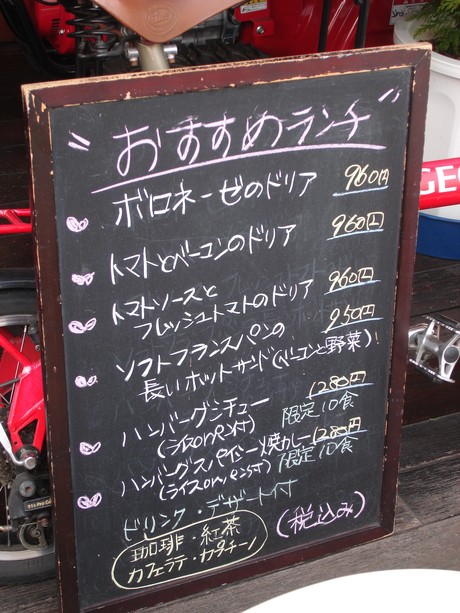 "おすすめランチ"
ボロネーゼのドリア 960円
トマトとベーコンのドリア 960円
トマトソースと
フレッシュトマトのドリア 960円
ソフトフランスパンの 950円
長いホットサンド(ベーコンと野菜)
ハンバーグシチュー 1280円
(ライスorパン付) 限定10食
ハンバーグスパイシー焼カレー 1280円
(ライスorパン付) 限定10食
ドリンク・デザート付
珈琲・紅茶
カフェラテ・カプチーノ
(税込み)